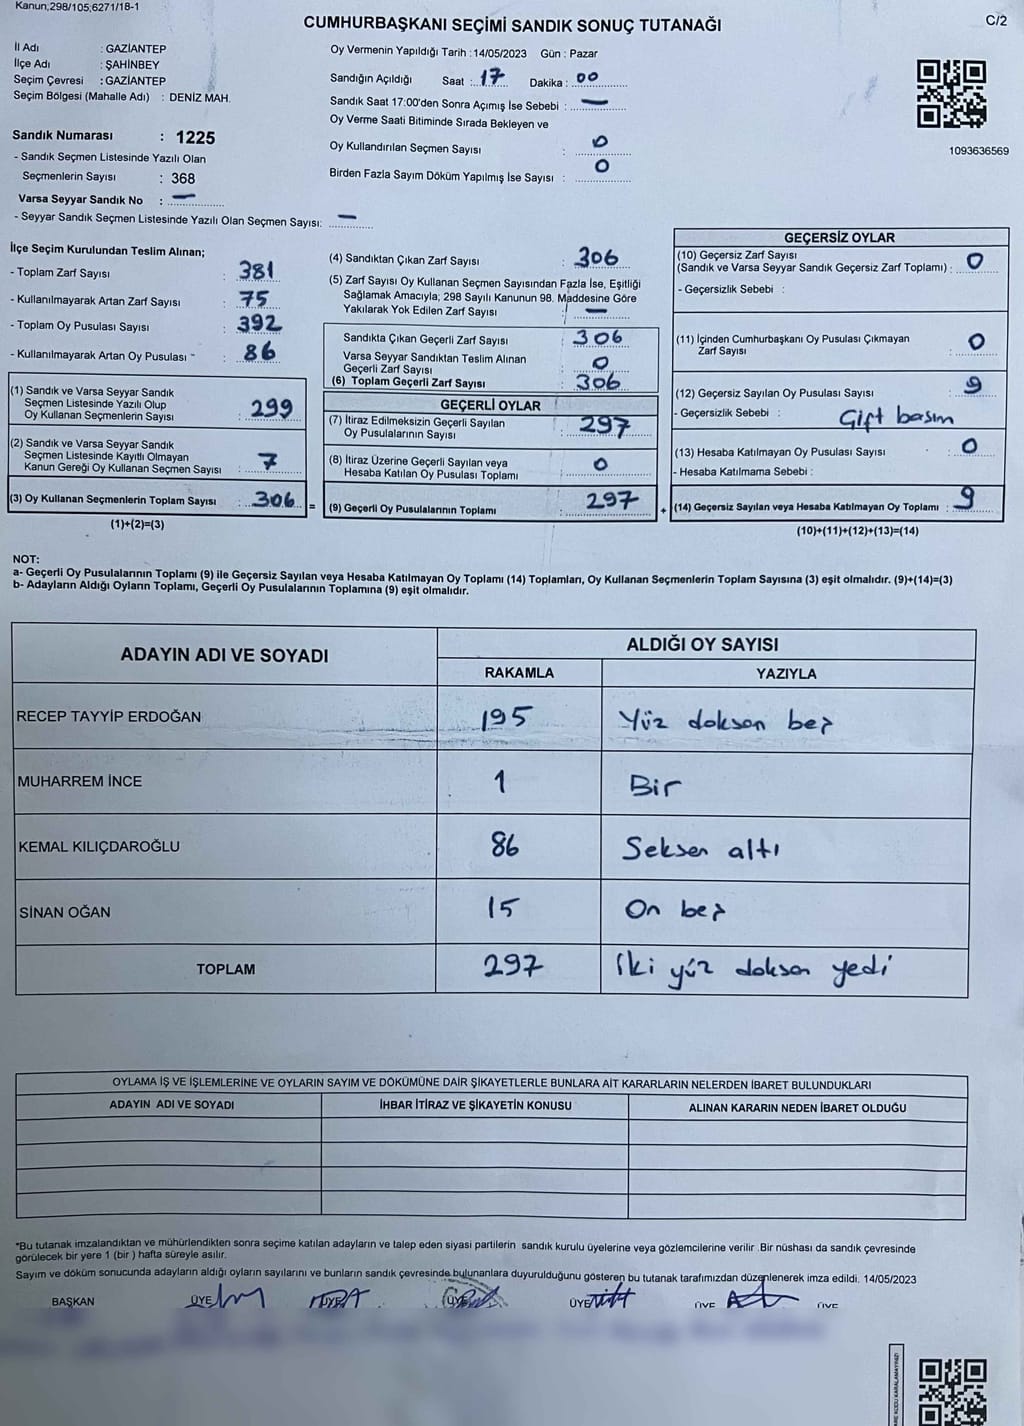 Kanun;298/105;6271/18-1
CUMHURBAŞKANI SEÇİMİ SANDIK SONUÇ TUTANAĞI
C/2
İl Adı : GAZİANTEP
İlçe Adı : ŞAHİNBEY
Seçim Çevresi : GAZİANTEP
Seçim Bölgesi (Mahalle Adı) : DENİZ MAH.
Sandık Numarası : 1225
- Sandık Seçmen Listesinde Yazılı Olan
Seçmenlerin Sayısı : 368
Varsa Seyyar Sandık No : —
- Seyyar Sandık Seçmen Listesinde Yazılı Olan Seçmen Sayısı: —
Oy Vermenin Yapıldığı Tarih : 14/05/2023 Gün : Pazar
Sandığın Açıldığı Saat : 17 Dakika : 00
Sandık Saat 17:00'den Sonra Açımış İse Sebebi : —
Oy Verme Saati Bitiminde Sırada Bekleyen ve
Oy Kullandırılan Seçmen Sayısı : 0
Birden Fazla Sayım Döküm Yapılmış İse Sayısı : 0
1093636569
İlçe Seçim Kurulundan Teslim Alınan;
- Toplam Zarf Sayısı : 381
- Kullanılmayarak Artan Zarf Sayısı : 75
- Toplam Oy Pusulası Sayısı : 392
- Kullanılmayarak Artan Oy Pusulası : 86
(1) Sandık ve Varsa Seyyar Sandık
Seçmen Listesinde Yazılı Olup
Oy Kullanan Seçmenlerin Sayısı : 299
(2) Sandık ve Varsa Seyyar Sandık
Seçmen Listesinde Kayıtlı Olmayan
Kanun Gereği Oy Kullanan Seçmen Sayısı : 7
(3) Oy Kullanan Seçmenlerin Toplam Sayısı : 306 =
(1)+(2)=(3)
(4) Sandıktan Çıkan Zarf Sayısı : 306
(5) Zarf Sayısı Oy Kullanan Seçmen Sayısından Fazla İse, Eşitliği
Sağlamak Amacıyla; 298 Sayılı Kanunun 98. Maddesine Göre
Yakılarak Yok Edilen Zarf Sayısı : —
Sandıkta Çıkan Geçerli Zarf Sayısı : 306
Varsa Seyyar Sandıktan Teslim Alınan
Geçerli Zarf Sayısı : 0
(6) Toplam Geçerli Zarf Sayısı : 306
GEÇERLİ OYLAR
(7) İtiraz Edilmeksizin Geçerli Sayılan
Oy Pusulalarının Sayısı : 297
(8) İtiraz Üzerine Geçerli Sayılan veya
Hesaba Katılan Oy Pusulası Toplamı : 0
(9) Geçerli Oy Pusulalarının Toplamı : 297 +
GEÇERSİZ OYLAR
(10) Geçersiz Zarf Sayısı
(Sandık ve Varsa Seyyar Sandık Geçersiz Zarf Toplamı) : 0
- Geçersizlik Sebebi :
(11) İçinden Cumhurbaşkanı Oy Pusulası Çıkmayan
Zarf Sayısı : 0
(12) Geçersiz Sayılan Oy Pusulası Sayısı : 9
- Geçersizlik Sebebi : Çift basım
(13) Hesaba Katılmayan Oy Pusulası Sayısı : 0
- Hesaba Katılmama Sebebi :
(14) Geçersiz Sayılan veya Hesaba Katılmayan Oy Toplamı : 9
(10)+(11)+(12)+(13)=(14)
NOT:
a- Geçerli Oy Pusulalarının Toplamı (9) ile Geçersiz Sayılan veya Hesaba Katılmayan Oy Toplamı (14) Toplamları, Oy Kullanan Seçmenlerin Toplam Sayısına (3) eşit olmalıdır. (9)+(14)=(3)
b- Adayların Aldığı Oyların Toplamı, Geçerli Oy Pusulalarının Toplamına (9) eşit olmalıdır.
ADAYIN ADI VE SOYADI ALDIĞI OY SAYISI
RAKAMLA YAZIYLA
RECEP TAYYİP ERDOĞAN 195 Yüz doksan beş
MUHARREM İNCE 1 Bir
KEMAL KILIÇDAROĞLU 86 Seksen altı
SİNAN OĞAN 15 On beş
TOPLAM 297 İki yüz doksan yedi
OYLAMA İŞ VE İŞLEMLERİNE VE OYLARIN SAYIM VE DÖKÜMÜNE DAİR ŞİKAYETLERLE BUNLARA AİT KARARLARIN NELERDEN İBARET BULUNDUKLARI
ADAYIN ADI VE SOYADI İHBAR İTİRAZ VE ŞİKAYETİN KONUSU ALINAN KARARIN NEDEN İBARET OLDUĞU
*Bu tutanak imzalandıktan ve mühürlendikten sonra seçime katılan adayların ve talep eden siyasi partilerin sandık kurulu üyelerine veya gözlemcilerine verilir .Bir nüshası da sandık çevresinde
görülecek bir yere 1 (bir ) hafta süreyle asılır.
Sayım ve döküm sonucunda adayların aldığı oyların sayılarını ve bunların sandık çevresinde bulunanlara duyurulduğunu gösteren bu tutanak tarafımızdan düzenlenerek imza edildi. 14/05/2023
BAŞKAN ÜYE ÜYE ÜYE ÜYE ÜYE ÜYE